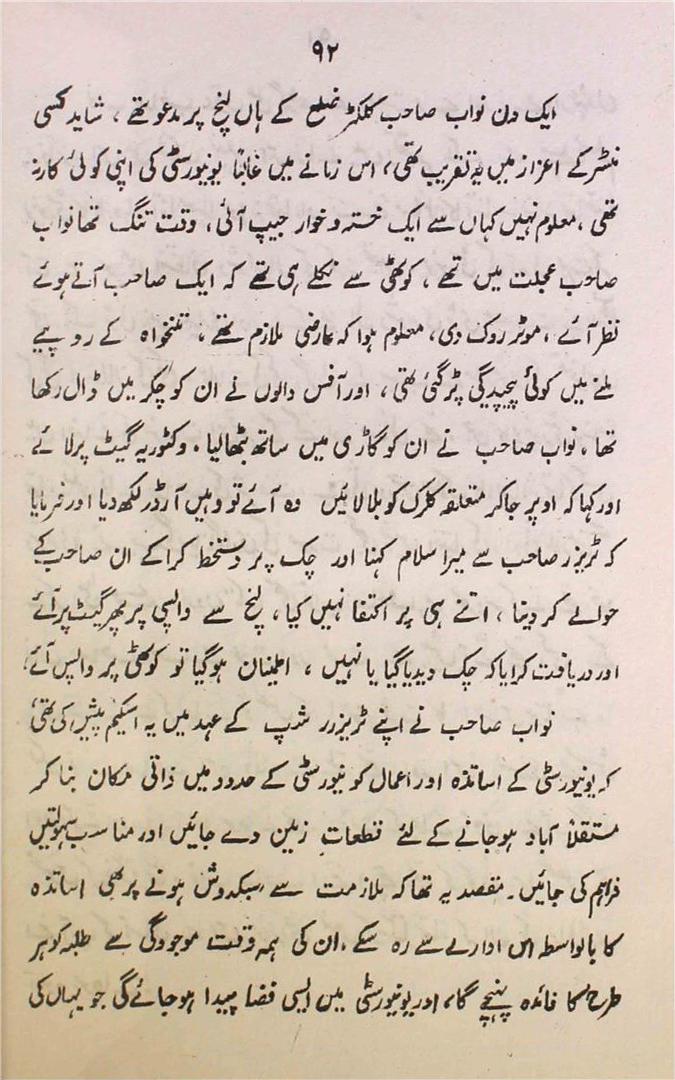 ۹۲
ایک دن نواب صاحب کلکٹر ضلع کے ہاں لنچ پر مدعو تھے ، شاید کسی
منسٹر کے اعزاز میں یہ تقریب تھی ، اس زمانے میں غالباً یونیورسٹی کی اپنی کوئی کار نہ
تھی ، معلوم نہیں کہاں سے ایک خستہ و خوار جیپ آئی ، وقت تنگ تھا نواب
صاحب عجلت میں تھے ، کوٹھی سے نکلے ہی تھے کہ ایک صاحب آتے ہوئے
نظر آئے ، موٹر روک دی ، معلوم ہوا کہ عارضی ملازم تھے ، تنخواہ کے روپیے
ملنے میں کوئی پیچیدگی پڑ گئی تھی ، اور آفس والوں نے ان کو چکر میں ڈال رکھا
تھا ، نواب صاحب نے ان کو گاڑی میں ساتھ بٹھا لیا ۔ وکٹوریہ گیٹ پر لائے
اور کہا کہ اوپر جا کر متعلقہ کلرک کو بلا لائیں وہ آئے تو وہیں آرڈر لکھ دیا اور فرمایا
کہ ٹریزرر صاحب سے میرا سلام کہنا اور چک پر دستخط کرا کے ان صاحب کے
حوالے کر دینا ، اتنے ہی پر اکتفا نہیں کیا ، لنچ سے واپسی پر پھر گیٹ پر آئے
اور دریافت کرایا کہ چک دیدیا گیا یا نہیں ، اطمینان ہو گیا تو کوٹھی پر واپس آئے ،
نواب صاحب نے اپنے ٹریزرر شپ کے عہد میں یہ اسکیم پیش کی تھی
کہ یونیورسٹی کے اساتذہ اور اعمال کو نیورسٹی کے حدود میں ذاتی مکان بنا کر
مستقلاً آباد ہو جانے کے لئے قطعاتِ زمین دے جائیں اور مناسب سہولتیں
فراہم کی جائیں ۔ مقصد یہ تھا کہ ملازمت سے سبکدوش ہونے پر بھی اساتذہ
کا بالواسطہ اس ادارے سے رہ سکے ، ان کی ہمہ وقت موجودگی سے طلبہ کو ہر
طرح کا فائدہ پہنچے گا ، اور یونیورسٹی میں ایسی فضا پیدا ہو جائے گی جو یہاں کی